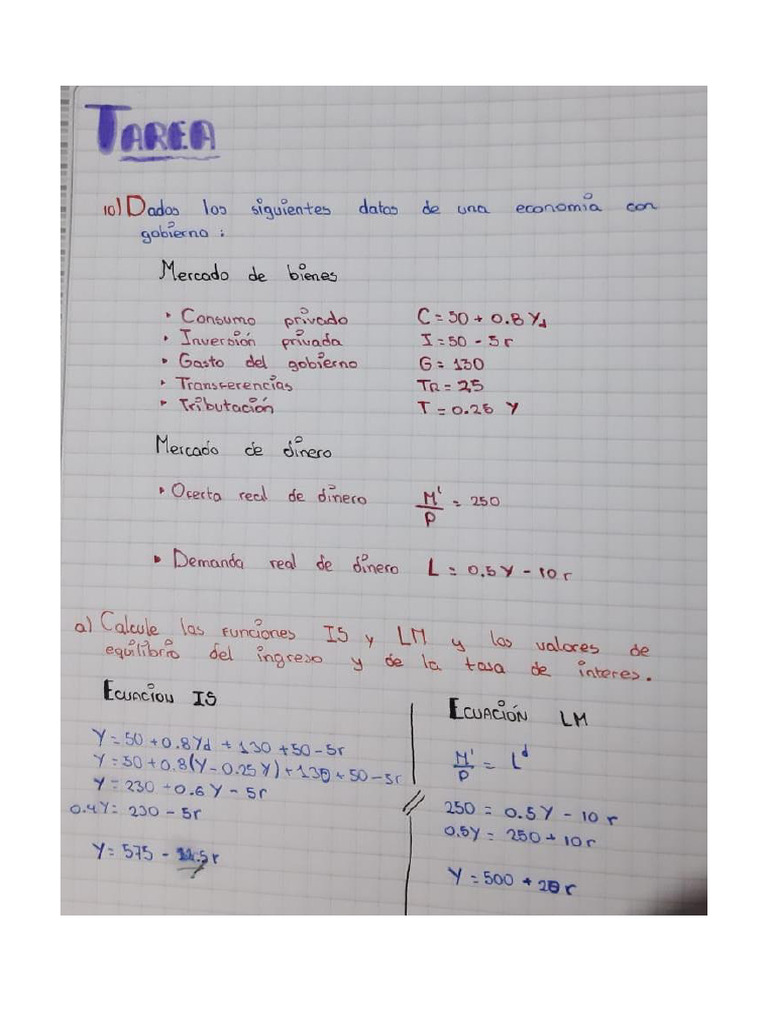 TAREA
10) Dados los siguientes datos de una economía con
gobierno :
Mercado de bienes
• Consumo privado C = 50 + 0.8 Yd
• Inversión privada I = 50 - 5r
• Gasto del gobierno G = 130
• Transferencias TR = 25
• Tributación T = 0.25 Y
Mercado de dinero
• Ocerta real de dinero M'/P = 250
• Demanda real de dinero L = 0,5 Y - 10 r
a) Calcule las funciones IS y LM y los valores de
equilibrio del ingreso y de la tasa de interes.
Ecuación IS
Y = 50 + 0.8Yd + 130 + 50 - 5r
Y = 50 + 0.8(Y - 0.25 Y) + 130 + 50 - 5r
Y = 230 + 0.6 Y - 5r
0.4Y = 230 - 5r
Y = 575 - 12.5 r
Ecuación LM
M'/P = Ld
250 = 0.5Y - 10 r
0.5Y = 250 + 10r
Y = 500 + 20r